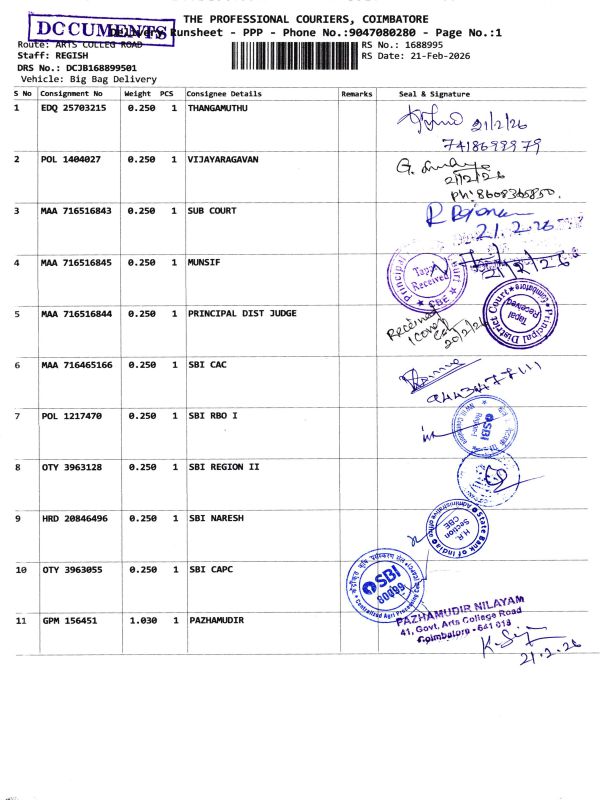 THE PROFESSIONAL COURIERS, COIMBATORE
DOCUMENTS
Delivery Runsheet - PPP - Phone No.:9047080280 - Page No.:1
Route: ARTS COLLEG ROAD
RS No.: 1688995
Staff: REGISH
RS Date: 21-Feb-2026
DRS No.: DCJB168899501
Vehicle: Big Bag Delivery
S No Consignment No Weight PCS Consignee Details Remarks Seal & Signature
1 EDQ 25703215 0.250 1 THANGAMUTHU
21/2/26
7418699979
2 POL 1404027 0.250 1 VIJAYARAGAVAN
21/2/26
ph: 8608365850.
3 MAA 716516843 0.250 1 SUB COURT
21.2.26
4 MAA 716516845 0.250 1 MUNSIF
21/2/26
Principal
Court
Tapal
Received
CBE
5 MAA 716516844 0.250 1 PRINCIPAL DIST JUDGE
Received
20/2/26
Principal District Court
Coimbatore
Tapal
Received
6 MAA 716465166 0.250 1 SBI CAC
7 POL 1217470 0.250 1 SBI RBO I
SBI
8 OTY 3963128 0.250 1 SBI REGION II
9 HRD 20846496 0.250 1 SBI NARESH
State Bank of India
Administrative office
H.R.
Section
CBE
10 OTY 3963055 0.250 1 SBI CAPC
SBI
Centralised Agri Processing
11 GPM 156451 1.030 1 PAZHAMUDIR
PAZHAMUDIR NILAYAM
41, Govt. Arts College Road
Coimbatore - 641 018
21.2.26